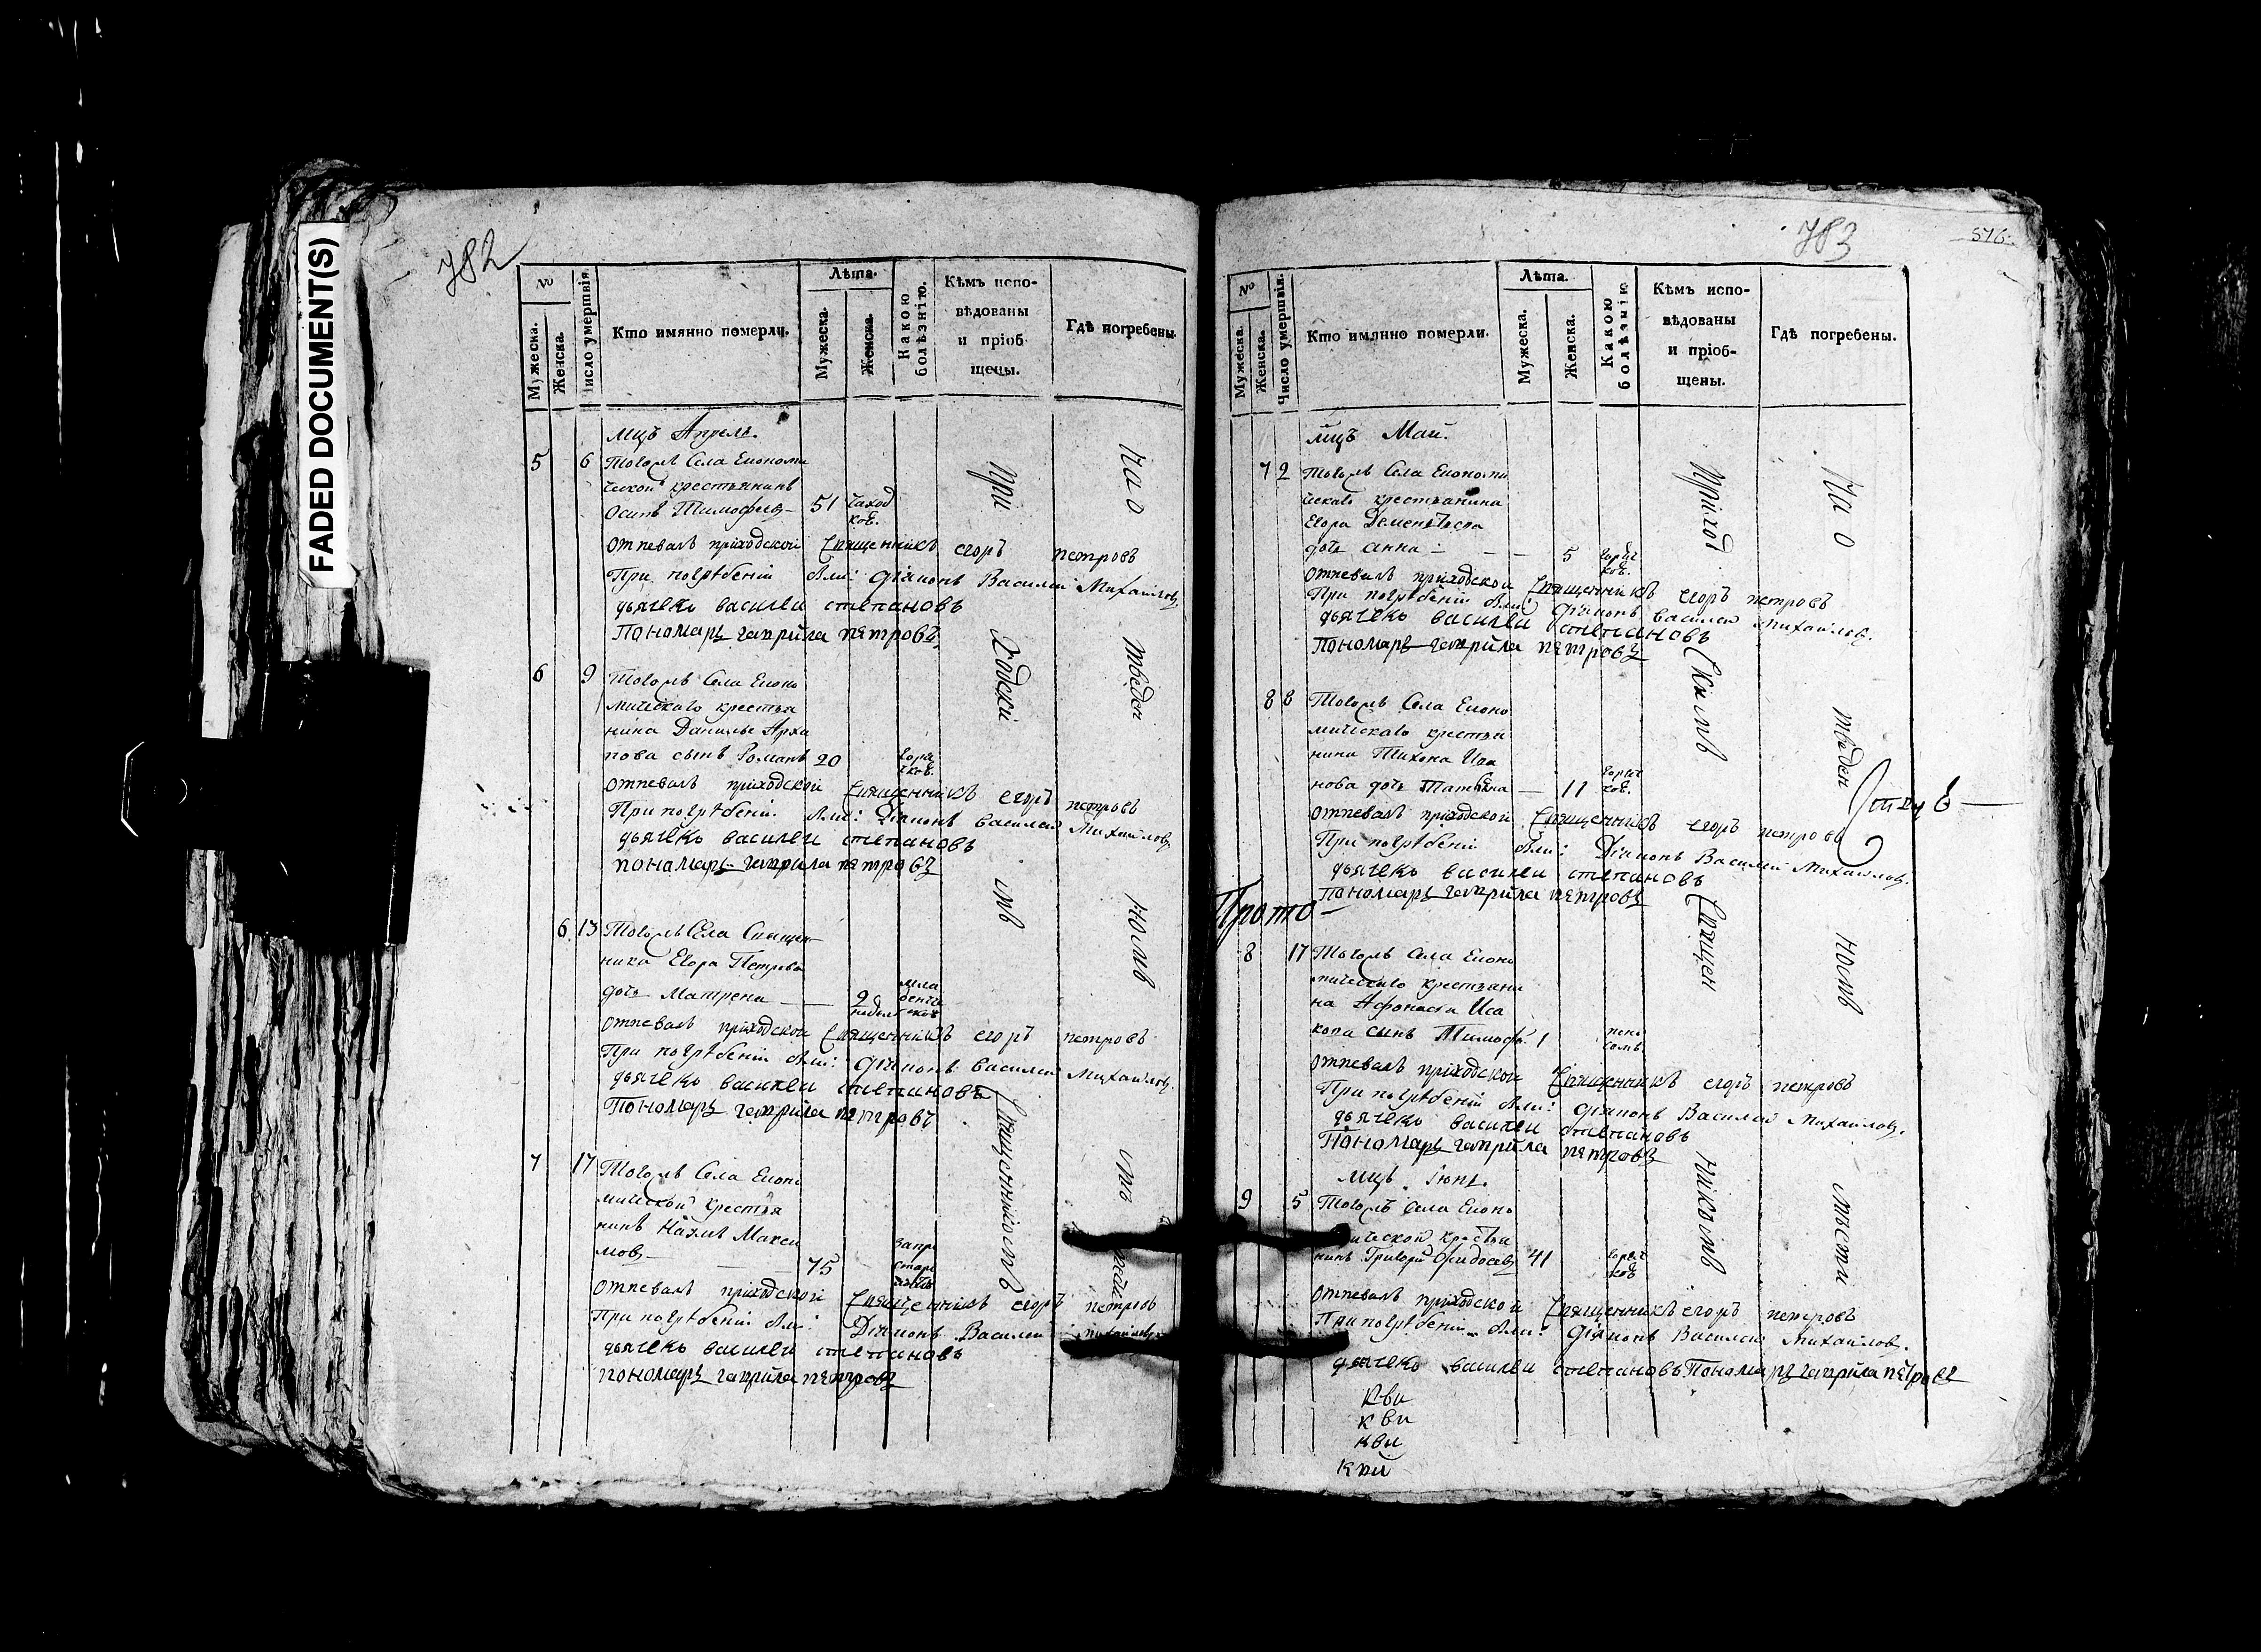 FADED DOCUMENT(S)
782
№
Мужеска.
Женска.
Число умершвія.
Кто имянно померли.
Лѣта.
Мужеска.
Женска.
Какою болѣзнію.
Кѣмъ испо-
вѣдованы
и пріоб-
щены.
Гдѣ погребены.
мцъ Апрель.
5 6 Тогожъ Села Економи
ческой крестьянинъ
Осипъ Тимофеевъ 51 чахот
коѣ.
Отпевалъ приходской Священникъ егоръ петровъ
При погрѣбеніи были: діяконъ Василей Михайловъ
дьячекъ василеи степановъ
Пономарь гаврила петровъ
6 9 Тогожъ Села Еконо
мическаго крестья
нина Данилы Архи
пова сынъ Романъ 20 горя
чкоѣ.
отпевалъ приходской Священникъ егоръ петровъ
При погрѣбеніи были: Діяконъ василей Михайловъ
дьячекъ василеи степановъ
пономарь гаврила петровъ
6. 13 Тогожъ Села Священ
ника Егора Петрова
дочь Матрена 2
недел мла
денче
скоѣ
отпевалъ приходской Священникъ егоръ петровъ
При погрѣбеніи были: діяконъ василей Михайловъ.
дьячекъ василеи степановъ
Пономарь гаврила петровъ
7 17 Тогожъ Села Еконо
мической крестья
нинъ Наумъ Макси
мовъ 75
Отпевалъ приходской Священникъ егоръ петровъ
При погрѣбеніи были: Діяконъ Василей Михайловъ
дьячекъ василеи степановъ
пономарь гаврила петровъ
При
ходскі
мъ
Священникомъ
На о
тведен
номъ
783
576.
№
Мужеска.
Женска.
Число умершвія.
Кто имянно померли.
Лѣта.
Мужеска.
Женска.
Какою болѣзнію
Кѣмъ испо-
вѣдованы
и пріоб-
щены.
Гдѣ погребены.
мцъ Май.
7 2 Тогожъ Села Економи
ческаго крестьянина
Егора Дементьева
дочь анна 5 горяч
коѣ.
Отпевалъ приходской Священникъ егоръ петровъ
При погрѣбеніи были: діяконъ василей Михайловъ.
дьячекъ василеи степановъ
Пономарь гаврила петровъ
8 8 Тогожъ Села Еконо
мическаго крестья
нина Тихона Ива
нова дочь Татьяна 11 горяч
коѣ.
Отпевалъ приходской Священникъ егоръ петровъ
При погрѣбеніи были: Діяконъ Василей Михайловъ.
дьячекъ василеи степановъ
Пономарь гаврила петровъ
Прото-
8 17 Тогожъ Села Еконо
мическаго крестьяни
на Афонасья Иса
кова сынъ Тимофей 1
Отпевалъ приходской Священникъ егоръ петровъ
При погрѣбеніи были: діяконъ Василей Михайловъ.
дьячекъ василеи степановъ
Пономарь гаврила петровъ
мцъ Іюнь.
9 5 Тогожъ Села Еконо
мической крестья
нинъ Григорй Федосеевъ 41 горяч
коѣ
Отпевалъ приходской Священникъ егоръ петровъ
При погрѣбеніи были: діяконъ Василей Михайлов.
дьячекъ василеи степановъ Пономарь гаврила петровъ
Приход
скимъ
Священ
никомъ
На о
тведен
номъ
мѣсти